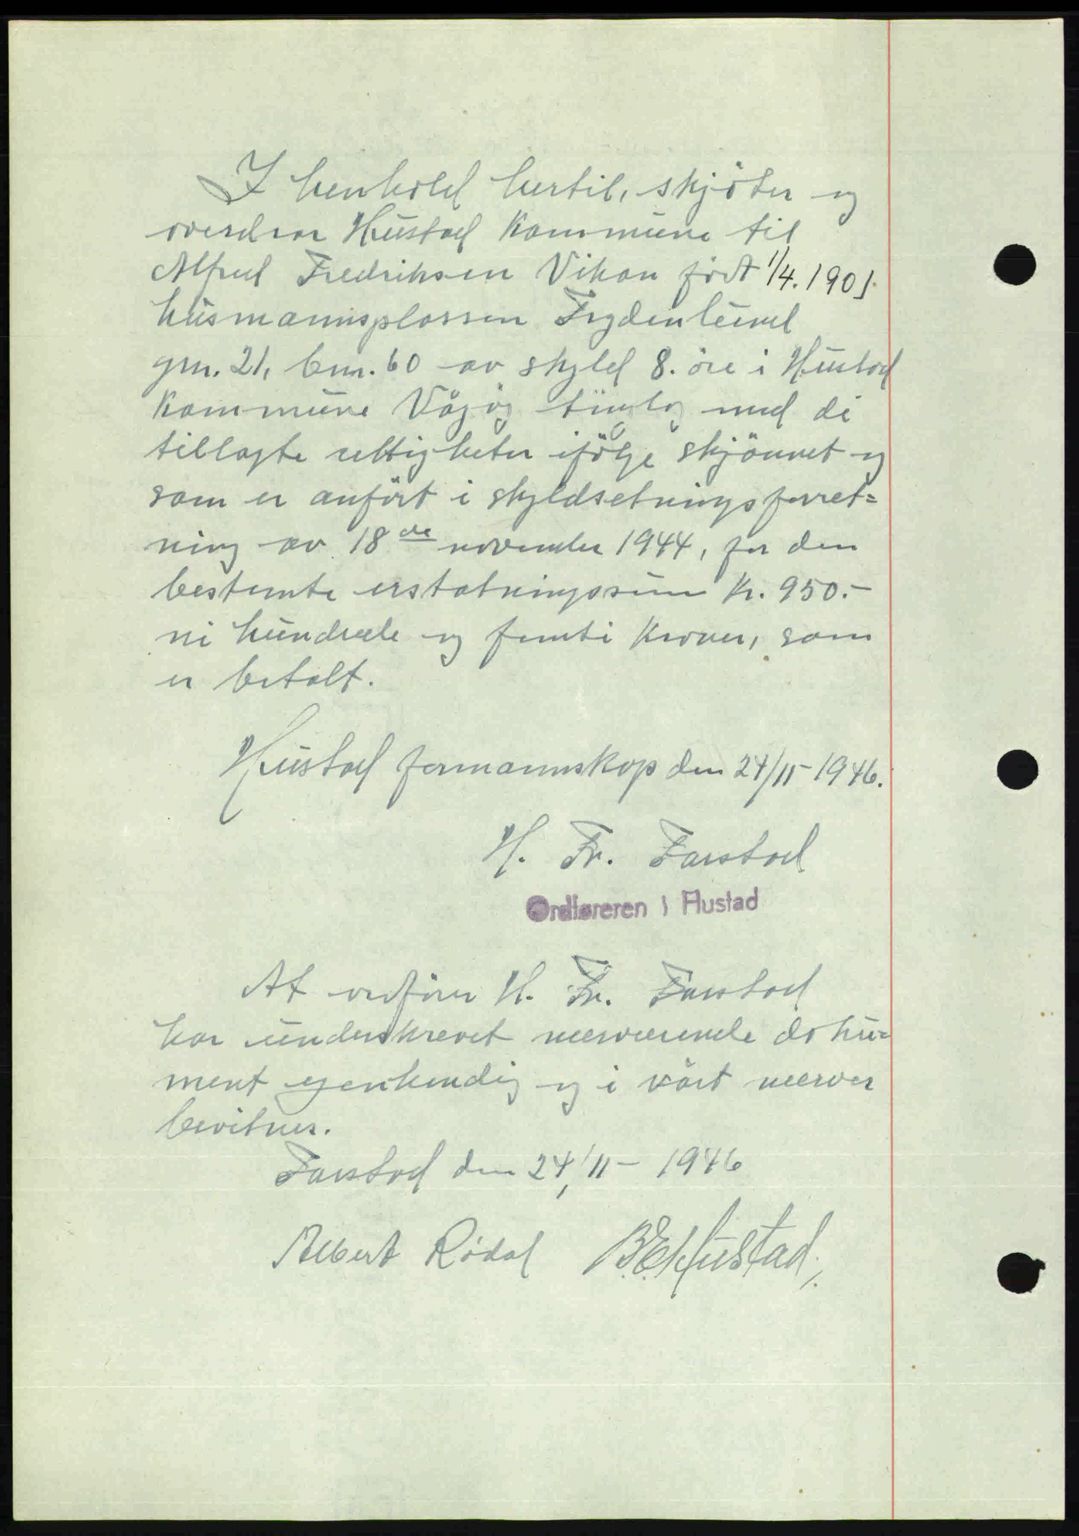 I henhold hertil, skjöter og
overdrar Hustad Kommune til
Alfred Fredriksen Vikan födt 1/4. 1901.
husmannsplassen Frydenlund
gnr. 21, bnr. 60 av skyld 8. öre i Hustad
Kommune Vågöy tinglag med de
tillagte rettigheter ifölge skjönnet og
som er anfört i skyldsetningsforret=
ning av 18de november 1944, for den
bestemte erstatningssum Kr. 950.-
ni hundrede og femti Kroner, som
er betalt.
Hustad formannskap den 24/11-1946.
H. Fr. Farstad
Ordføreren i Hustad
At ordförer H. Fr. Farstad
har underskrevet nærværende doku=
ment egenhendig og i vårt nærvær
bevitnes.
Farstad den 24/11- 1946
Albert Rødal B.E. Hustad.